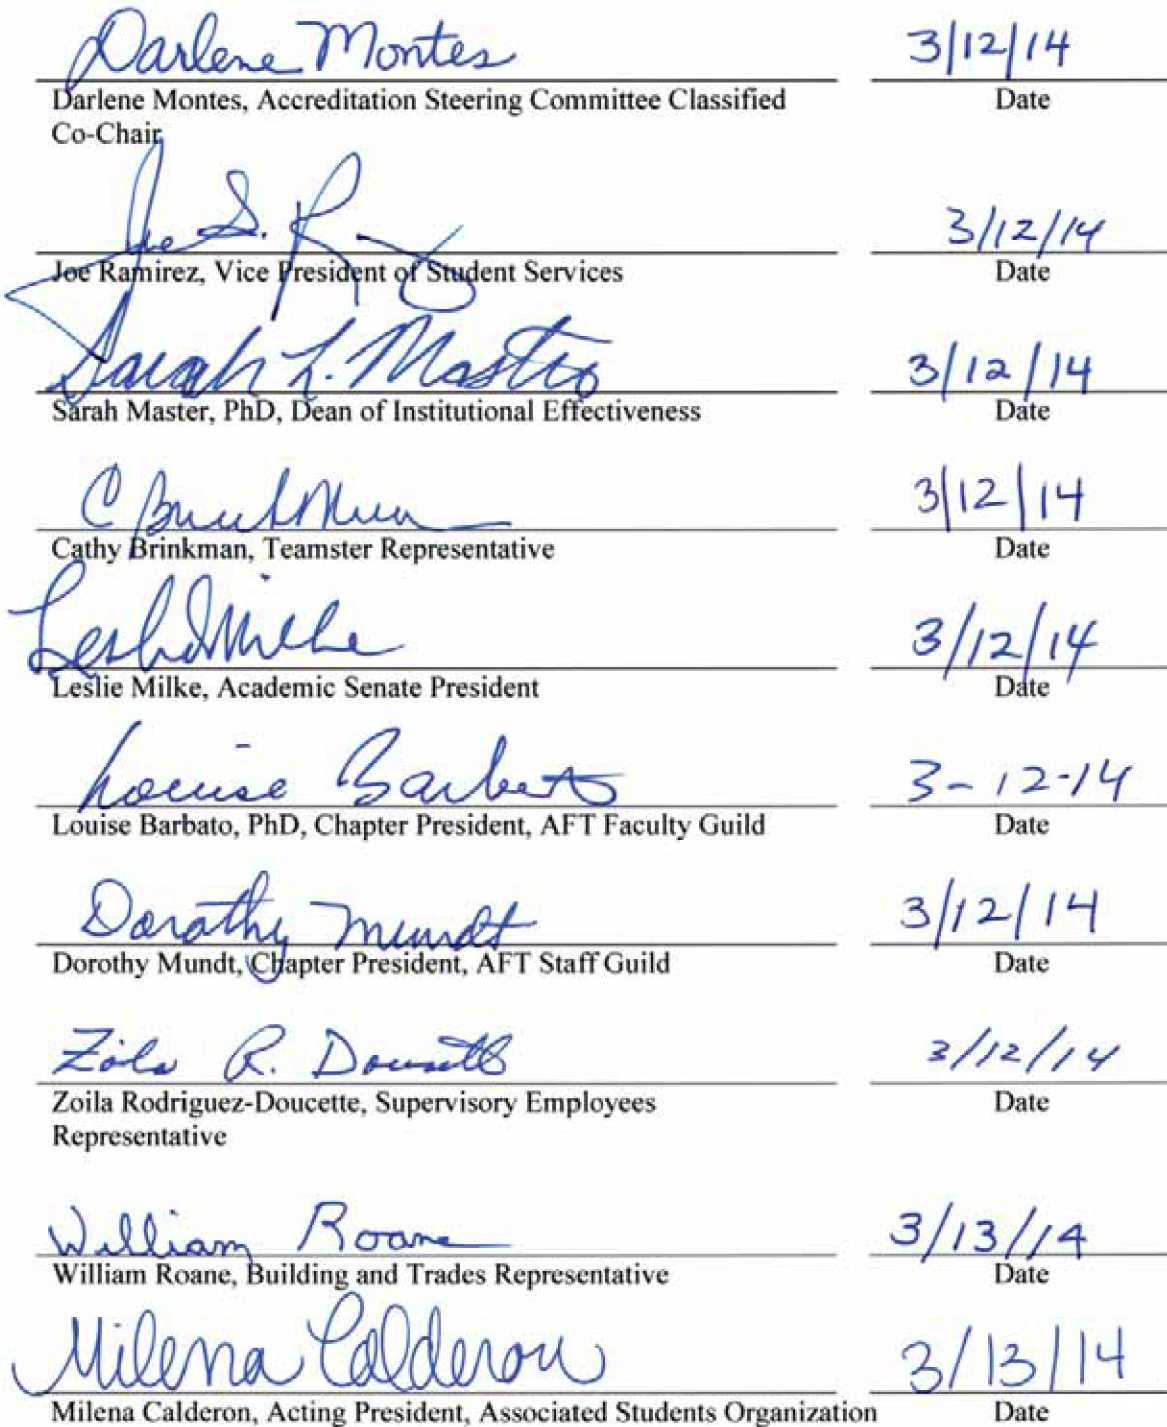 Darlene Montes 3/12/14
Darlene Montes, Accreditation Steering Committee Classified Date
Co-Chair
Joe S. R 3/12/14
Joe Ramirez, Vice President of Student Services Date
Sarah L. Master 3/12/14
Sarah Master, PhD, Dean of Institutional Effectiveness Date
C Brinkman 3/12/14
Cathy Brinkman, Teamster Representative Date
Leslie Milke 3/12/14
Leslie Milke, Academic Senate President Date
Louise Barbato 3-12-14
Louise Barbato, PhD, Chapter President, AFT Faculty Guild Date
Dorothy Mundt 3/12/14
Dorothy Mundt, Chapter President, AFT Staff Guild Date
Zoila R. Doucette 3/12/14
Zoila Rodriguez-Doucette, Supervisory Employees Date
Representative
William Roane 3/13/14
William Roane, Building and Trades Representative Date
Milena Calderon 3/13/14
Milena Calderon, Acting President, Associated Students Organization Date